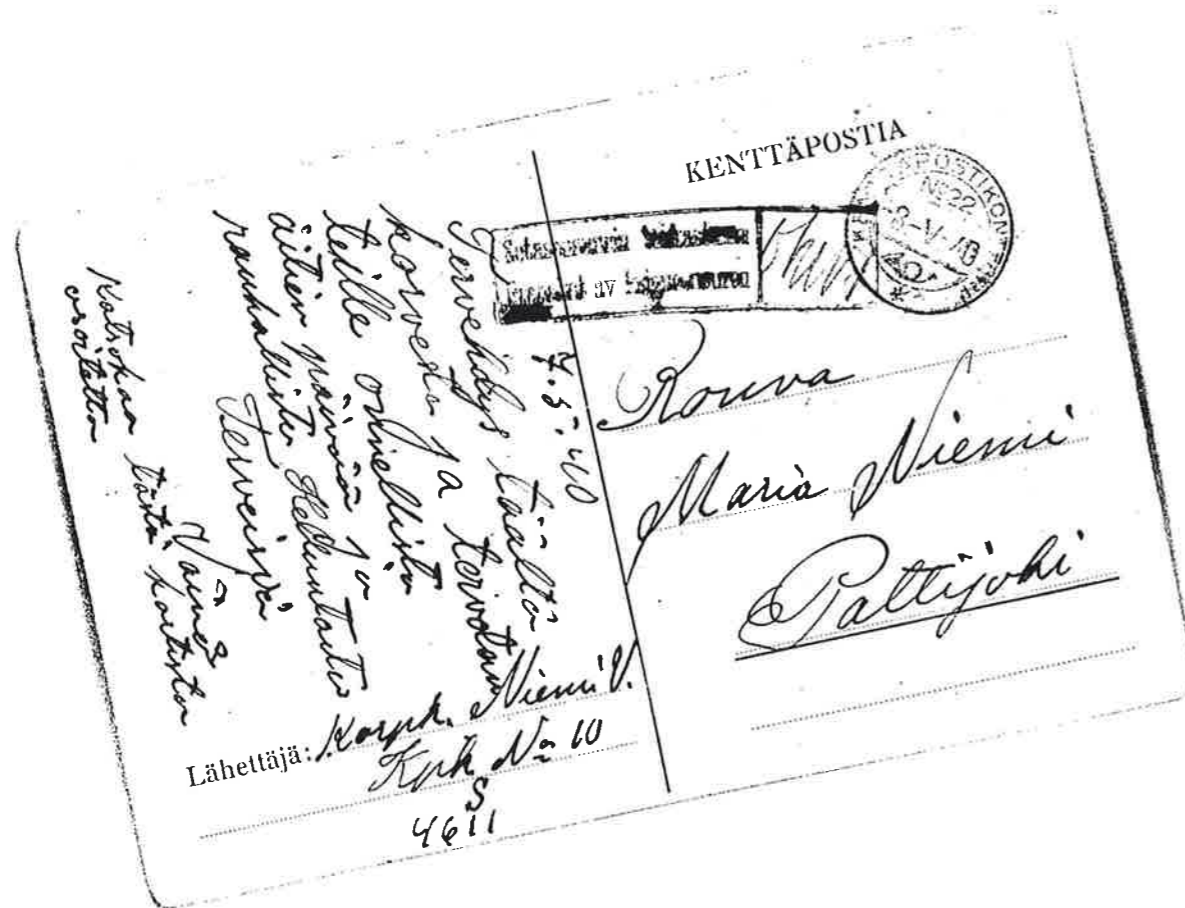 KENTTÄPOSTIA
KENTTÄPOSTIKONTTORI
No 22
8-V-40
Sotasensuurin tarkastama
av krigscensuren
Rouva
Maria Niemi
Pattijoki
7.5.40
Tervehdys täältä
korvesta ja toivotan
teille onnellista
äitien päivää ja
rauhallista Helluntaita
Terveisin
Väinö
Katsokaa tästä kortista
osoitetta
Lähettäjä: Korpr. Niemi V.
Kpk. No 10
S
4611